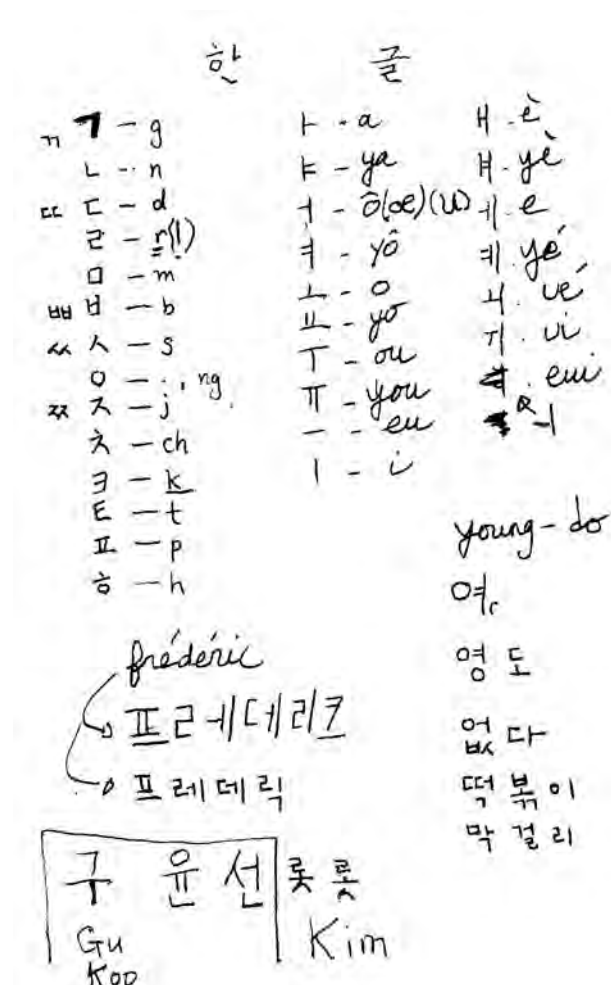 한 글
ㄲ ㄱ - g
ㄴ - n
ㄸ ㄷ - d
ㄹ - r(l)
ㅁ - m
ㅃ ㅂ - b
ㅆ ㅅ - s
ㅇ - . , ng
ㅉ ㅈ - j
ㅊ - ch
ㅋ - k
ㅌ - t
ㅍ - p
ㅎ - h
ㅏ - a
ㅑ - ya
ㅓ - ô(œ)(u)
ㅕ - yô
ㅗ - o
ㅛ - yo
ㅜ - ou
ㅠ - you
ㅡ - eu
ㅣ - i
ㅐ - è
ㅒ - yè
ㅔ - e
ㅖ - yé
ㅚ - ué
ㅟ - ui
eui
ㅢ
young-do
여
영도
없다
떡볶이
막걸리
frédéric
프르ㅔ데리크
프레데릭
구 윤 선 롯 롯
Gu Kim
Koo